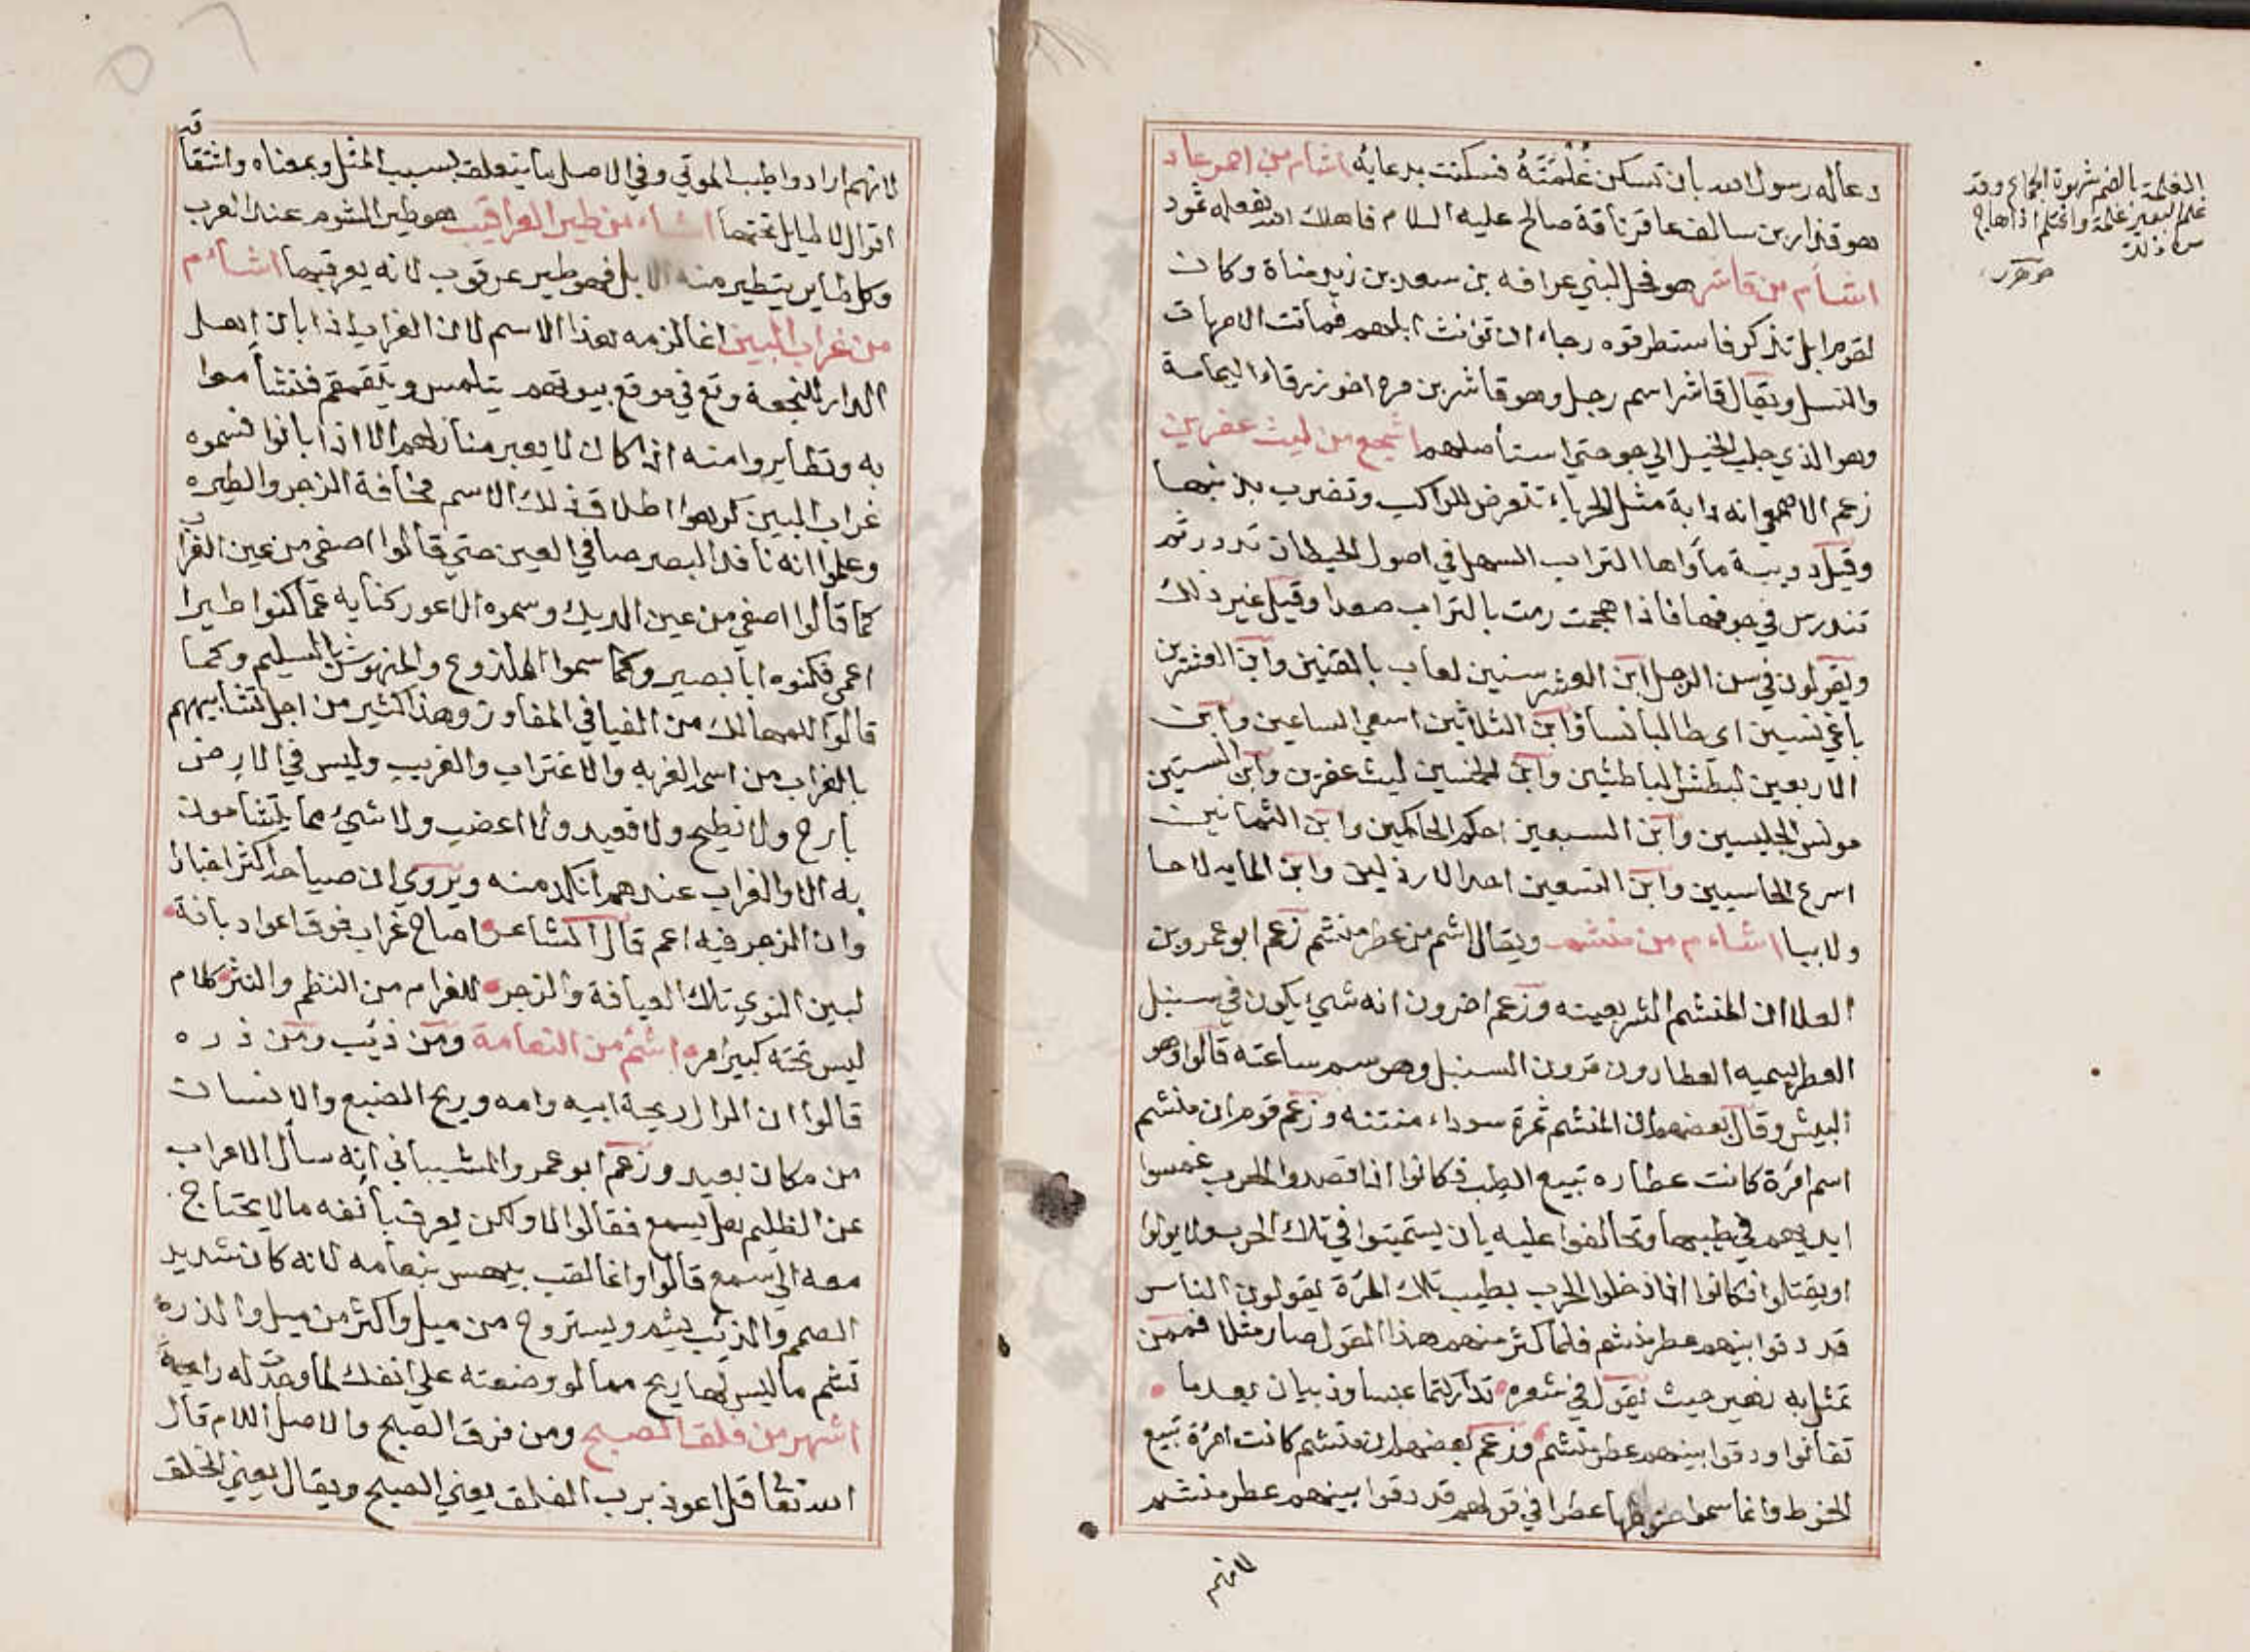 دعا له رسول الله بان تسكن غُلْمَتَهُ فسكنت بدعايه اشام من احمر عاد
هو قذار بن سالف عاقر ناقة صالح عليه السلام فاهلك الله بفعله ثمود
اشأم من قاشر هو فحل لبني عوافه بن سعد بن زيد مناة وكان
لقوم ابل تذكر فاستطرقوه رجاء ان تونث ابلهم فماتت الامهات
والنسل ويقال قاشر اسم رجل وهو قاشر بن مره اخو زرقاء اليمامة
وهو الذي جلب الخيل الي جو حتي استأصلهم اشجع من ليث عفرين
زعم الاصمعي انه دابة مثل الحرباء تتعرض للراكب وتضرب بذنبها
وقيل دويبة مأواها التراب السهل في اصول الحيطان تدور ثم
تندس في جوفها فاذا هجمت رمت بالتراب صعدا وقيل غير ذلك
ويقولون في سن الرجل ابن العشر سنين لعاب بالقنين وابن العشرين
باغي نسين اي طالبا نسا وابن الثلاثين اسعي الساعين وابن
الاربعين ابطش الباطشين وابن الخمسين ليث عفرين وابن الستين
مونس الجليسين وابن السبعين احكم الحاكمين وابن الثمانين
اسرع الحاسبين وابن التسعين احد الارذلين وابن المايه لاحا
ولا بيا اشاءم من منشم ويقال اشم من عطر منشم زعم ابو عمرو بن
العلا ان المنشم الشر بعينه وزعم اخرون انه شي يكون في سنبل
العطر يسميه العطارون قرون السنبل وهو سم ساعته قالوا وهو
البيش وقال بعضهم ان المنشم ثمرة سوداء منتنه وزعم قوم ان منشم
اسم امرة كانت عطاره تبيع الطيب فكانوا اذا قصدوا الحرب غمسوا
ايديهم في طيبها وتحالفوا عليه بان يستميتوا في تلك الحرب ولا يولوا
او يقتلوا فكانوا اذا دخلوا الحرب بطيب تلك المرة يقولون الناس
قد دقوا بينهم عطر منشم فلما كثر منهم هذا القول صار مثلا فممن
تمثل به زهير حيث يقول في شعره تداركتما عبسا وذبيان بعدما
تفانوا ودقوا بينهم عطر منشم وزعم بعضهم ان منشم كانت امرة تبيع
الحنوط وانما سموا حنوطها عطرا في قولهم قد دقوا بينهم عطر منشم
لانهم
الغلمة بالضم شهوة الجماع وقد
غلم البعير غلمة واغتلم اذا هاج
من ذلك
جوهري
لانهم ارادوا طيب الموتي وفي الاصل ما يتعلق بسبب المثل وبمعناه واشتقاقه
اقوال لا طايل تحتها اشاءم من طير العراقيب هو طير الشوم عند العرب
وكل طاير يتطير منه الابل فهو طير عرقوب لانه يعرقبها اشاءم
من غراب البين انما لزمه هذا الاسم لان الغراب اذا بان اهل
الدار للنجعة وقع في موقع بيوتهم يتلمس ويتقمقم فتشأموا
به وتطايروا منه اذا كان لا يعبر منازلهم الا اذا بانوا فسموه
غراب البين كرهوا اطلاق ذلك الاسم مخافة الزجر والطيره
وعلموا انه نافذ البصر صافي العين حتي قالوا اصفي من عين الغراب
كما قالوا اصفي من عين الديك وسموه الاعور كنايه عما كنوا طيرا
اعمي فكنوه ابا بصير وكما سموا الملدوع والمنهوش بالسليم وكما
قالوا للمهالك من الفيافي المفاوز وهذا كثير من اجل تشأييهم
بالغراب من اسمه الغربه والاغتراب والغريب وليس في الارض
بارح ولا نطيح ولا قعيد ولا اعضب ولا شيء مما يتشأمون
به الا والغراب عندهم انكد منه ويروي ان صياحه اكثر اخبارا
وان الزجر فيه اعم قال الشاعر صاح غراب فوق اعواد بانة
لبين النوي تلك العيافة والزجر للغرام من النظم والنثر كلام
ليس تحته كبير امر اشم من النعامة ومن ذيب ومن ذره
قالوا ان الرال ريحة ابيه وامه وريح الضبع والانسان
من مكان بعيد وزعم ابو عمرو الشيباني انه سأل الاعراب
عن الظليم هل يسمع فقالوا لا ولكن يعرف بأنفه ما لا يحتاج
معه الي سمع قالوا وانما لقب بيهس بنعامه لانه كان شديد
الصمم والذيب يشم ويستروح من ميل واكثر من ميل والذره
تشم ما ليس لها ريح مما لو وضعته علي انفك لما وجدت له رايحة
اشهر من فلق الصبح ومن فرق الصبح والاصل اللام قال
الله تعا قل اعوذ برب الفلق يعني الصبح ويقال يعني الخلق